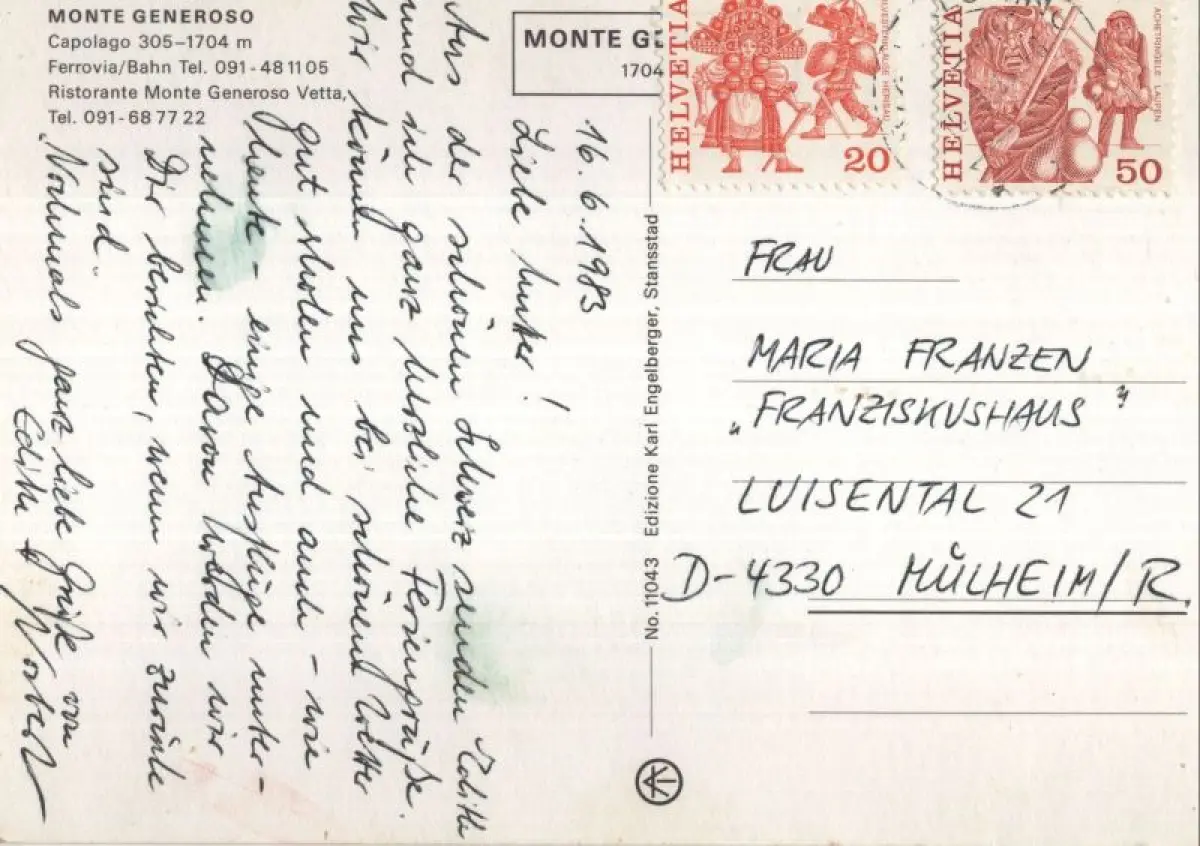 MONTE GENEROSO
Capolago 305–1704 m
Ferrovia/Bahn Tel. 091-48 11 05
Ristorante Monte Generoso Vetta,
Tel. 091-68 77 22
MONTE GE
1704
HELVETIA
HERISAU
20
HELVETIA
ACHETRINGELE LAUPEN
50
16.6.1983
Liebe Mutter!
Aus der schönen Schweiz senden Edith
und ich ganz herzliche Feriengrüße.
Wir können uns bei schönem Wetter
gut erholen und auch – wie
heute – einige Ausflüge unter-
nehmen. Davon werden wir
Dir berichten, wenn wir zurück
sind.
Nochmals ganz liebe Grüße von
Edith + Norbert
No. 11043 Edizione Karl Engelberger, Stansstad
FRAU
MARIA FRANZEN
„FRANZISKUSHAUS"
LUISENTAL 21
D-4330 MÜLHEIM/R.